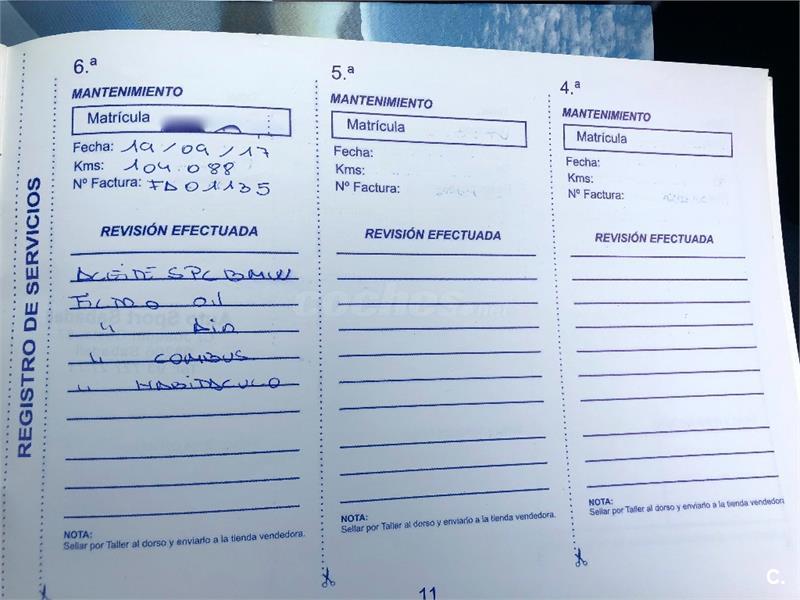 REGISTRO DE SERVICIOS
6.ª
MANTENIMIENTO
Matrícula
Fecha: 19/09/17
Kms: 104.088
Nº Factura: FD01135
REVISIÓN EFECTUADA
ACEITE SPC BMW
FILTRO OIL
" AIR
" COMBUS
" HABITACULO
NOTA:
Sellar por Taller al dorso y enviarlo a la tienda vendedora.
5.ª
MANTENIMIENTO
Matrícula
Fecha:
Kms:
Nº Factura:
REVISIÓN EFECTUADA
NOTA:
Sellar por Taller al dorso y enviarlo a la tienda vendedora.
4.ª
MANTENIMIENTO
Matrícula
Fecha:
Kms:
Nº Factura:
REVISIÓN EFECTUADA
NOTA:
Sellar por Taller al dorso y enviarlo a la tienda vendedora
11
coches.net
C.